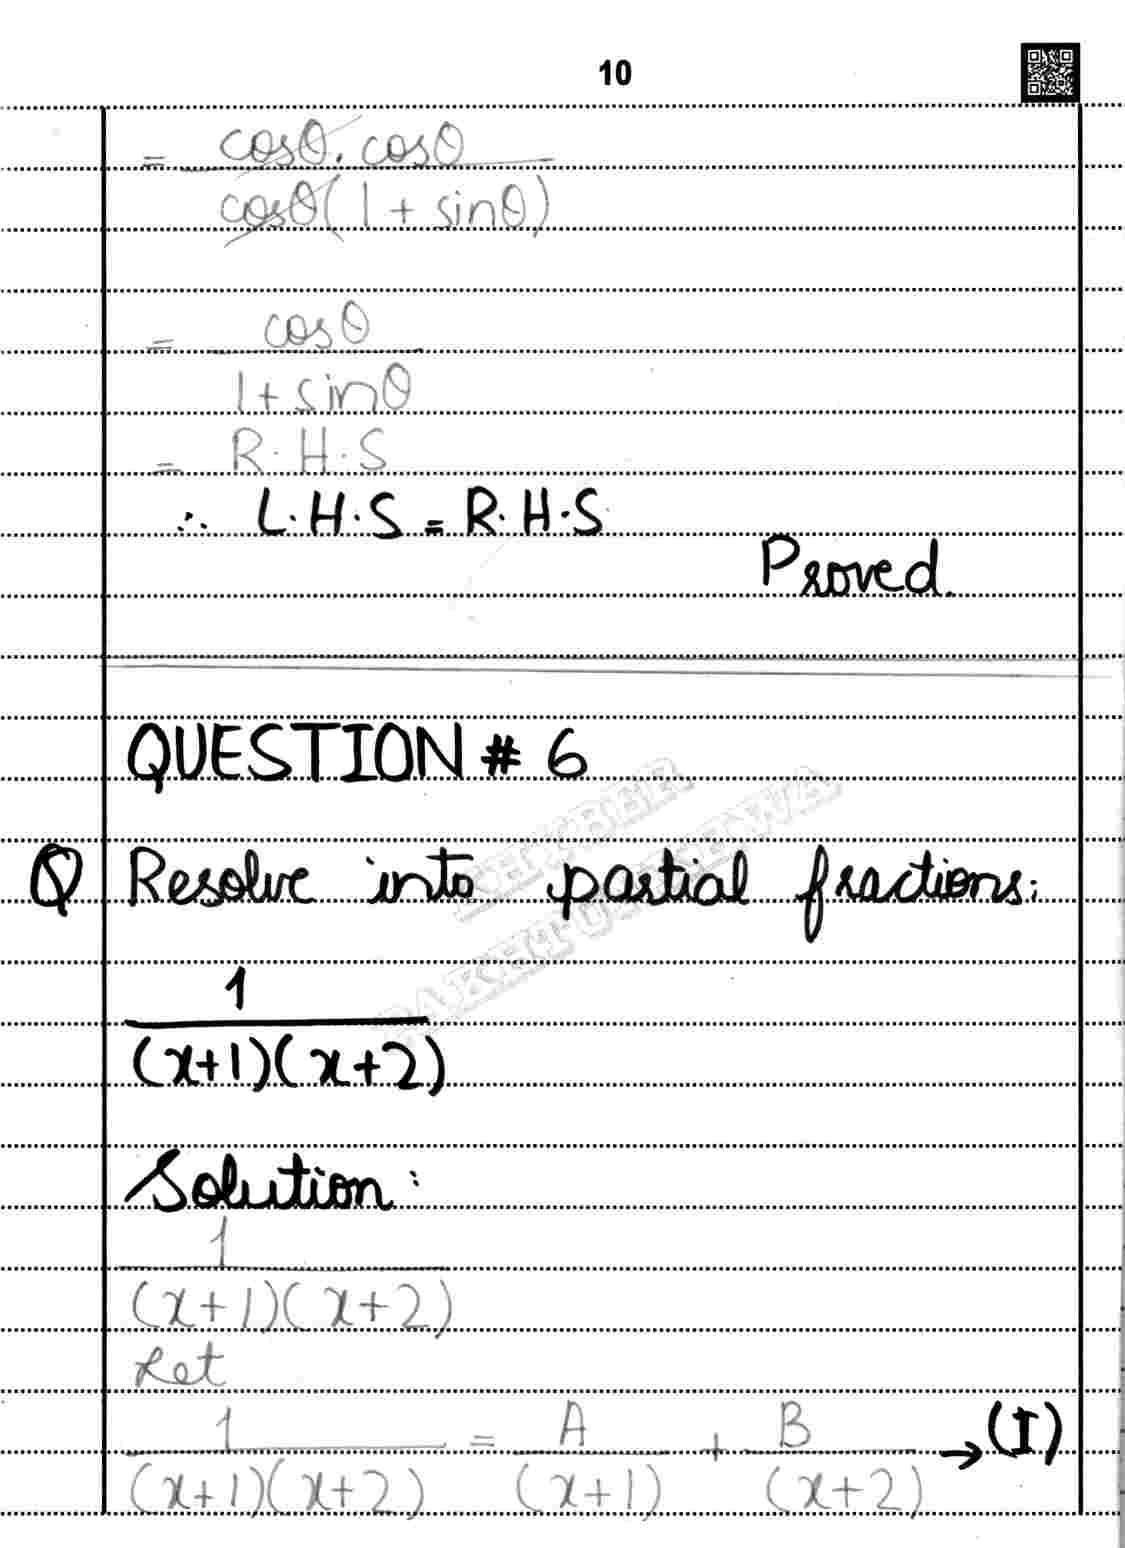 10
= cosθ. cosθ
cosθ(1 + sinθ)
= cosθ
1 + sinθ
= R.H.S
∴ L.H.S = R.H.S
Proved.
QUESTION # 6
Q Resolve into partial fractions:
1
(x+1)(x+2)
KHYBER
PAKHTUNKHWA
Solution:
1
(x+1)(x+2)
Let
1 = A + B → (I)
(x+1)(x+2) (x+1) (x+2)